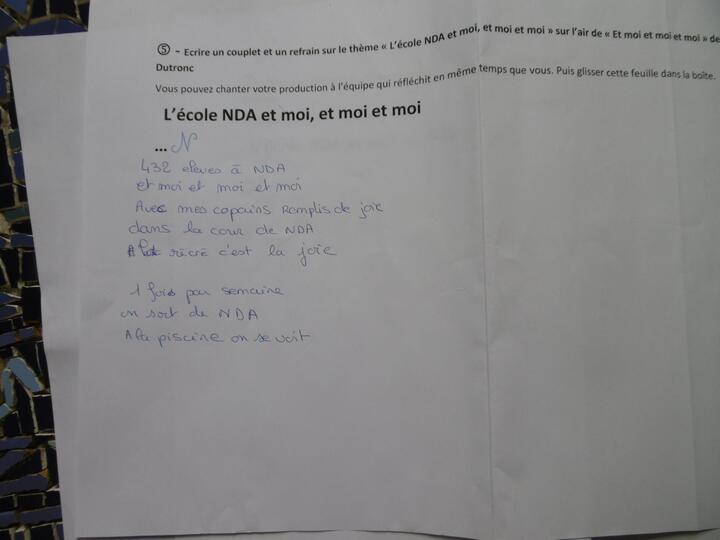 ⑤ - Ecrire un couplet et un refrain sur le thème « L'école NDA et moi, et moi et moi » sur l'air de « Et moi et moi et moi » de
Dutronc
Vous pouvez chanter votre production à l'équipe qui réfléchit en même temps que vous. Puis glisser cette feuille dans la boîte.
L'école NDA et moi, et moi et moi
... N
432 eleves à NDA
et moi et moi et moi
Avec mes copains remplis de joie
dans la cour de NDA
A la récré c'est la joie
1 fois par semaine
on sort de NDA
A la piscine on se voit